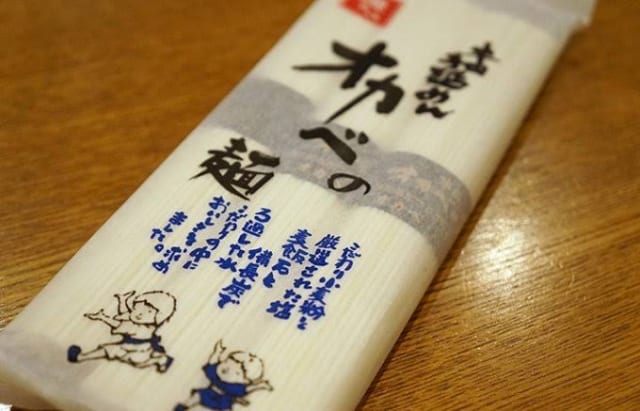 オカベの
麺
こだわり小麦粉と
厳選された塩
麦飯石と
備長炭で
ろ過した水
こだわりの中に
おいしさを求め
ました。